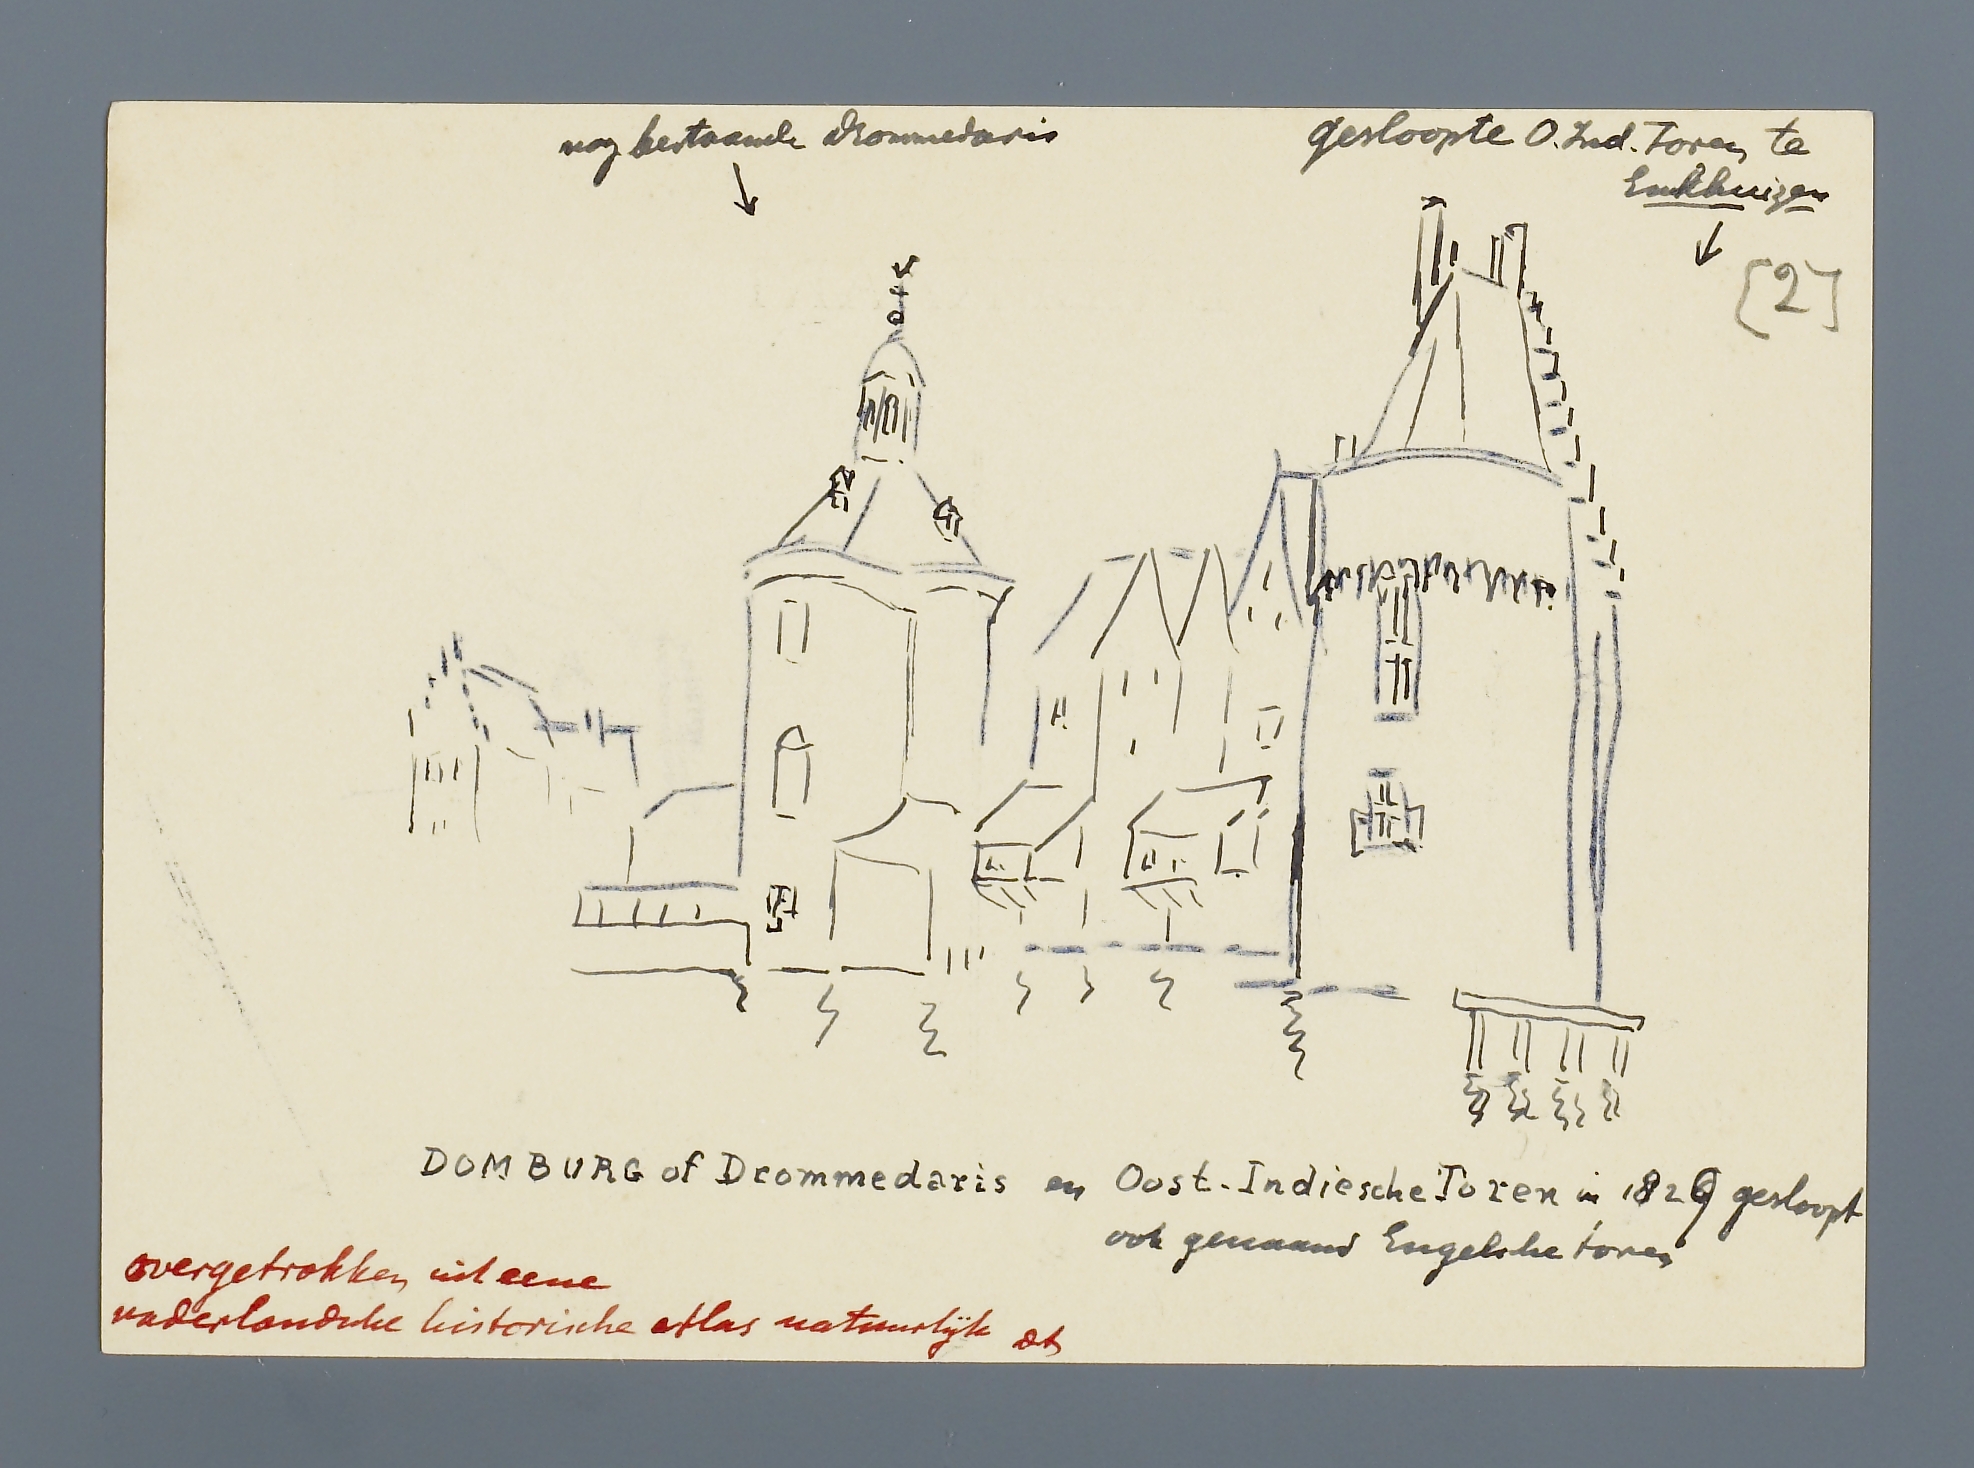 nog bestaande Drommedaris
gesloopte O.Ind. Toren te
Enkhuizen
[2]
DOMBURG of Drommedaris en Oost-Indiesche Toren in 1829 gesloopt
ook genaamd Engelsche toren
overgetrokken uit eene
vaderlandsche historische atlas natuurlijk